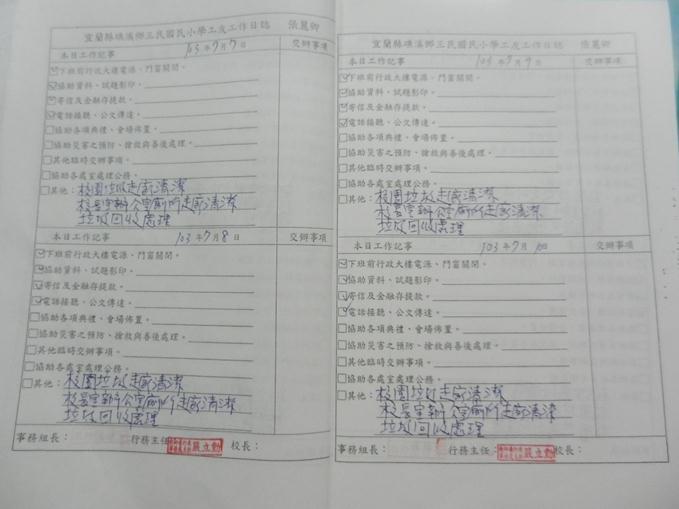 宜蘭縣礁溪鄉三民國民小學工友工作日誌 張麗卿
本日工作記事 103年9月7日 交辦事項
下班前行政大樓電源、門窗關閉。
協助資料、試題影印。
寄信及金融存提款。
電話接聽、公文傳遞。
協助各項典禮、會場佈置。
協助災害之預防、搶救與善後處理。
其他臨時交辦事項。
協助各處室處理公務。
其他：校園垃圾走廊清潔
校長室辦公室廁所走廊清潔
垃圾回收處理
本日工作記事 103年9月8日 交辦事項
下班前行政大樓電源、門窗關閉。
協助資料、試題影印。
寄信及金融存提款。
電話接聽、公文傳遞。
協助各項典禮、會場佈置。
協助災害之預防、搶救與善後處理。
其他臨時交辦事項。
協助各處室處理公務。
其他：校園垃圾走廊清潔
校長室辦公室廁所走廊清潔
垃圾回收處理
事務組長： 行務主任： 嚴立勳 校長：
宜蘭縣礁溪鄉三民國民小學工友工作日誌 張麗卿
本日工作記事 103年9月9日 交辦事項
下班前行政大樓電源、門窗關閉。
協助資料、試題影印。
寄信及金融存提款。
電話接聽、公文傳遞。
協助各項典禮、會場佈置。
協助災害之預防、搶救與善後處理。
其他臨時交辦事項。
協助各處室處理公務。
其他：校園垃圾走廊清潔
校長室辦公室廁所走廊清潔
垃圾回收處理
本日工作記事 103年9月10日 交辦事項
下班前行政大樓電源、門窗關閉。
協助資料、試題影印。
寄信及金融存提款。
電話接聽、公文傳遞。
協助各項典禮、會場佈置。
協助災害之預防、搶救與善後處理。
其他臨時交辦事項。
協助各處室處理公務。
其他：校園垃圾走廊清潔
校長室辦公室廁所走廊清潔
垃圾回收處理
事務組長： 行務主任： 嚴立勳 校長：